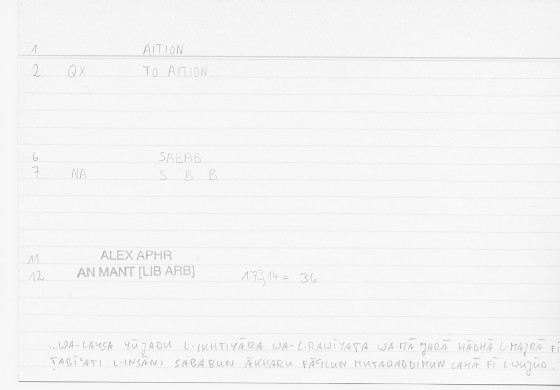 1 AITION
2 QX TO AITION
6 SABAB
7 NA S B B
11 ALEX APHR
12 AN MANT [LIB ARB] 173,14 = 36
...WA-LAYSA YŪJADU L-IKHTIYĀRA WA-L-RAWĪYATA WA-MĀ JARĀ HĀDHĀ L-MAJRĀ FĪ
ṬABĪʿATI L-INSĀNI SABABUN ĀKHARU FĀʿILUN MUTAQADDIMUN LAHĀ FĪ L-WUJŪD